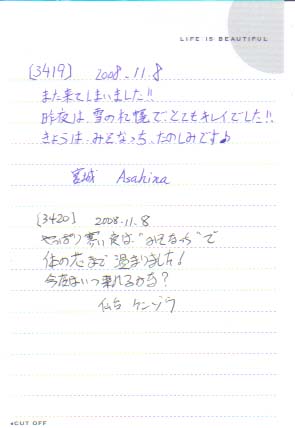 LIFE IS BEAUTIFUL
[3419] 2008.11.8
また来てしまいました!!
昨夜は、雪の札幌で、とてもキレイでした!!
きょうは、みそなっち、たのしみです♪
宮城 Asahina
[3420] 2008.11.8
やっぱり寒い夜は"みそなっち"で
体の芯まで温まりました!
今度はいつ来れるかな?
仙台 ケンゾウ
CUT OFF